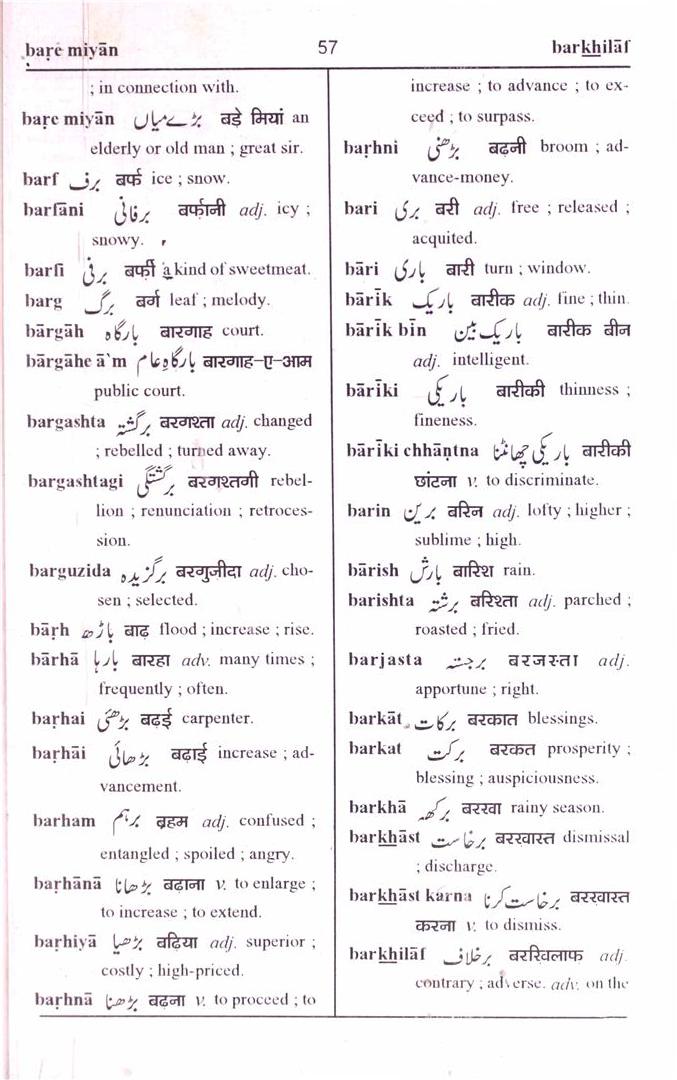 baṛe miyān 57 bar<u>kh</u>ilāf
; in connection with.
baṛe miyān بڑے میاں बड़े मियां an
elderly or old man ; great sir.
barf برف बर्फ ice ; snow.
barfāni برفانی बर्फानी adj. icy ;
snowy.
barfī برفی बर्फी a kind of sweetmeat.
barg برگ बर्ग leaf ; melody.
bārgāh بارگاہ बारगाह court.
bārgāhe ā`m بارگاہِ عام बारगाह-ए-आम
public court.
bargashta برگشتہ बरगश्ता adj. changed
; rebelled ; turned away.
bargashtagi برگشتگی बरगश्तगी rebel-
lion ; renunciation ; retroces-
sion.
barguzida برگزیدہ बरगुजीदा adj. cho-
sen ; selected.
bāṛh باڑھ बाढ़ flood ; increase ; rise.
bārhā بارہا बारहा adv. many times ;
frequently ; often.
baṛhai بڑھئی बढ़ई carpenter.
baṛhāi بڑھائی बढ़ाई increase ; ad-
vancement.
barham برہم ब्रहम adj. confused ;
entangled ; spoiled ; angry.
baṛhānā بڑھانا बढ़ाना v. to enlarge ;
to increase ; to extend.
baṛhiyā بڑھیا बढ़िया adj. superior ;
costly ; high-priced.
baṛhnā بڑھنا बढ़ना v. to proceed ; to
increase ; to advance ; to ex-
ceed ; to surpass.
baṛhni بڑھنی बढ़नी broom ; ad-
vance-money.
bari بری बरी adj. free ; released ;
acquited.
bāri باری बारी turn ; window.
bārīk باریک बारीक adj. fine ; thin.
bārīk bīn باریک بین बारीक बीन
adj. intelligent.
bārīki باریکی बारीकी thinness ;
fineness.
bārīki chhāṇtna باریکی چھانٹنا बारीकी
छांटना v. to discriminate.
barin برین बरिन adj. lofty ; higher ;
sublime ; high.
bārish بارش बारिश rain.
barishta برشتہ बरिश्ता adj. parched ;
roasted ; fried.
barjasta برجستہ बरजस्ता adj.
apportune ; right.
barkāt برکات बरकात blessings.
barkat برکت बरकत prosperity ;
blessing ; auspiciousness.
barkhā برکھہ बरखा rainy season.
bar<u>kh</u>āst برخاست बरखास्त dismissal
; discharge.
bar<u>kh</u>āst karna برخاست کرنا बरखास्त
करना v. to dismiss.
bar<u>kh</u>ilāf برخلاف बरखिलाफ adj.
contrary ; adverse. adv. on the